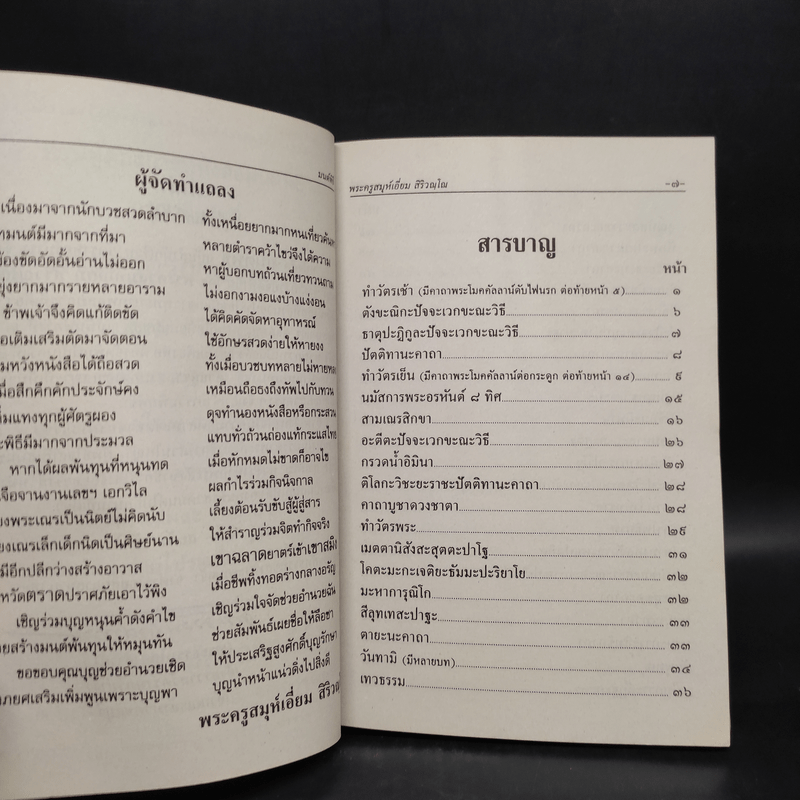 มนต์พิ
ผู้จัดทำแถลง
เนื่องมาจากนักบวชสวดลำบาก ทั้งเหนื่อยยากมากหนเที่ยวค้นหา
ทมนต์มีมากจากที่มา หลายตำราคว้าไขว่จึงได้ความ
้องขัดอัดอั้นอ่านไม่ออก หาผู้บอกบทถ้วนเที่ยวทวนถาม
ยุ่งยากมากรายหลายอาราม ไม่งอกงามงอแงบ้างแง่งอน
ข้าพเจ้าจึงคิดแก้ติดขัด ได้คิดคัดจัดหาอุทาหรณ์
อเติมเสริมตัดมาจัดตอน ใช้อักษรสวดง่ายให้หายงง
มหวังหนังสือได้ถือสวด ทั้งเมื่อบวชบทหลายไม่หายหลง
มื่อสึกคึกคักประจักษ์คง เหมือนถือธงถึงทัพไปกับทวน
่มแทงทุกผู้ศัตรูผอง ดุจทำนองหนังสือหรือกระสวน
ะพิธีมีมากจากประมวล แทบทั่วถ้วนถ่องแท้กระแสไทย
หากได้ผลพันทุนที่หนุนทด เมื่อหักหมดไม่ขาดก็อาจไข
จือจานงานเลขฯ เอกวิไล ผลกำไรร่วมกิจนิจกาล
ยงพระเณรเป็นนิตย์ไม่คิดนับ เลี้ยงต้อนรับขับสู้ผู้สู่สาร
ยงเณรเล็กเด็กนิตเป็นศิษย์นาน ให้สำราญร่วมจิตทำกิจจริง
มีอีกปลีกว่างสร้างอาวาส เขาฉลาดยาตร์เข้าเขาสมิง
หวัดตราดปราศภัยเอาไว้พิง เมื่อชีพทิ้งทอดร่างกลางอรัญ
เชิญร่วมบุญหนุนค้ำดังคำไข เชิญร่วมใจจัดช่วยอำนวยฉัน
วยสร้างมนต์พันทุนให้หมุนทัน ช่วยสัมพันธ์เผยชื่อให้ลือชา
ขอขอบคุณบุญช่วยอำนวยเชิด ให้ประเสริฐสูงศักดิ์บุญรักษา
ภยศเสริมเพิ่มพูนเพราะบุญพา บุญนำหน้าแน่วดิ่งไปสิ่งดี
พระครูสมุห์เอี่ยม สิริวณฺ
พระครูสมุห์เอี่ยม สิริวณฺโณ -๗-
สารบาญ
หน้า
ทำวัตรเช้า (มีคาถาพระโมคคัลลาน์ดับไฟนรก ต่อท้ายหน้า ๕) ๑
ตังขะณิกะปัจจะเวกขะณะวิธี ๖
ธาตุปะฏิกูละปัจจะเวกขะณะวิธี ๗
ปัตติทานะคาถา ๘
ทำวัตรเย็น (มีคาถาพระโมคคัลลาน์ต่อกระดูก ต่อท้ายหน้า ๑๔) ๙
นมัสการพระอรหันต์ ๘ ทิศ ๑๕
สามเณรสิกขา ๑๖
อะตีตะปัจจะเวกขะณะวิธี ๒๖
กรวดน้ำอิมินา ๒๗
ติโลกะวิชะยะราชะปัตติทานะคาถา ๒๘
คาถาบูชาดวงชาตา ๒๘
ทำวัตรพระ ๒๙
เมตตานิสังสะสุตตะปาโฐ ๓๑
โคตะมะกะเจติยะธัมมะปะริยาโย ๓๒
มะหาการุณิโก ๓๒
สีลุทเทสะปาฐะ ๓๓
ตายะนะคาถา ๓๓
วันทามิ (มีหลายบท) ๓๔
เทวธรรม ๓๖